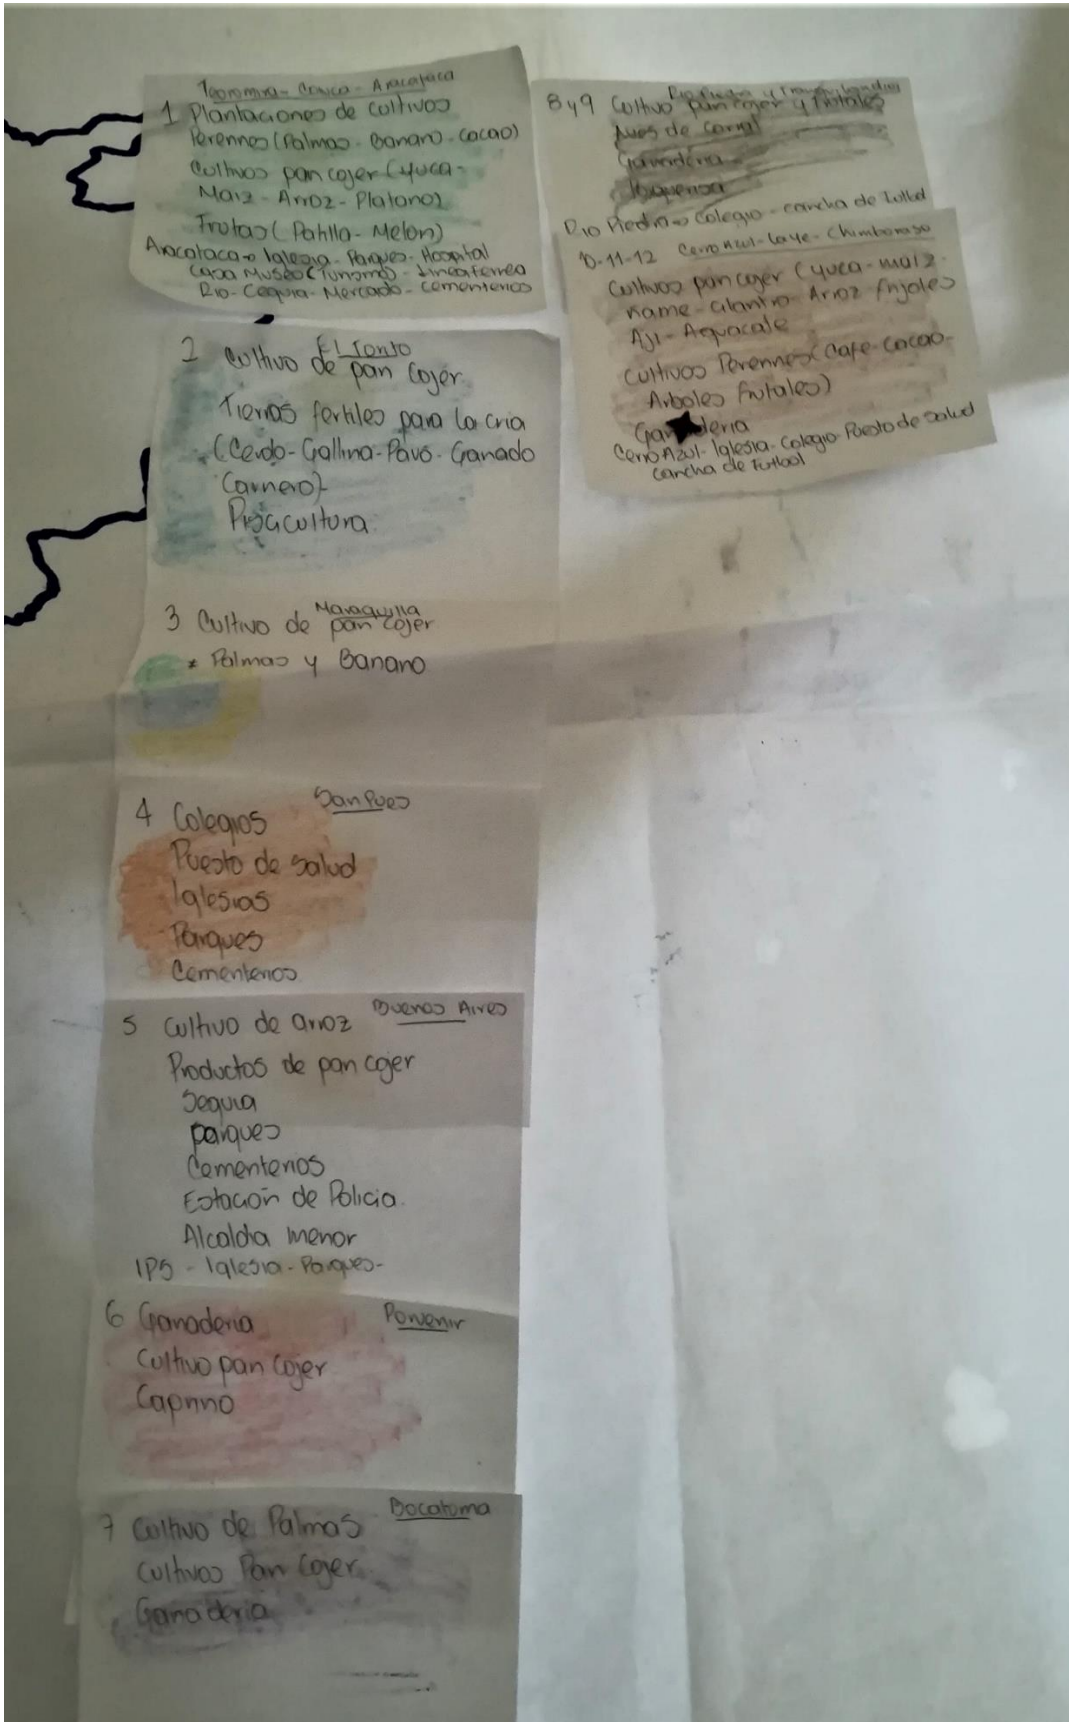 Teoromina - Cauca - Aracataca
1 Plantaciones de cultivos
Perennes (Palmas - Banano - Cacao)
Cultivos pan cojer (Yuca -
Maiz - Arroz - Platano)
Frutas (Patilla - Melon)
Aracataca → Iglesia - Parques - Hospital
Casa Museo (Turismo) - Linea ferrea
Rio - Cequia - Mercado - Cementerios
2 El Tonto
Cultivo de pan Cojer
Tierras fertiles para la cria
(Cerdo - Gallina - Pavo - Ganado
Carnero)
Pisicultura
3 Macaquilla
Cultivo de pan cojer
* Palmas y Banano
4 Colegios Sanpues
Puesto de salud
Iglesias
Parques
Cementerios
5 Cultivo de arroz Buenos Aires
Productos de pan cojer
Sequia
parques
Cementerios
Estación de Policia
Alcaldia menor
IPS - Iglesia - Parques -
6 Ganaderia Porvenir
Cultivo pan Cojer
Caprino
7 Cultivo de Palmas Bocatoma
Cultivos Pan Cojer
Ganaderia
Rio Piedra y
8 y 9 Cultivo pan cojer y frutales
Aves de corral
Ganaderia
Rio Piedra → Colegio - cancha de futbol
10-11-12 Cerro Azul - Laye - Chimboraso
Cultivos pan cojer (yuca - maiz -
ñame - cilantro - Arroz frijoles
Aji - Aguacate
Cultivos Perennes (Cafe - Cacao -
Arboles frutales)
Ganaderia
Cerro Azul - Iglesia - Colegio - Puesto de salud
cancha de Futbol